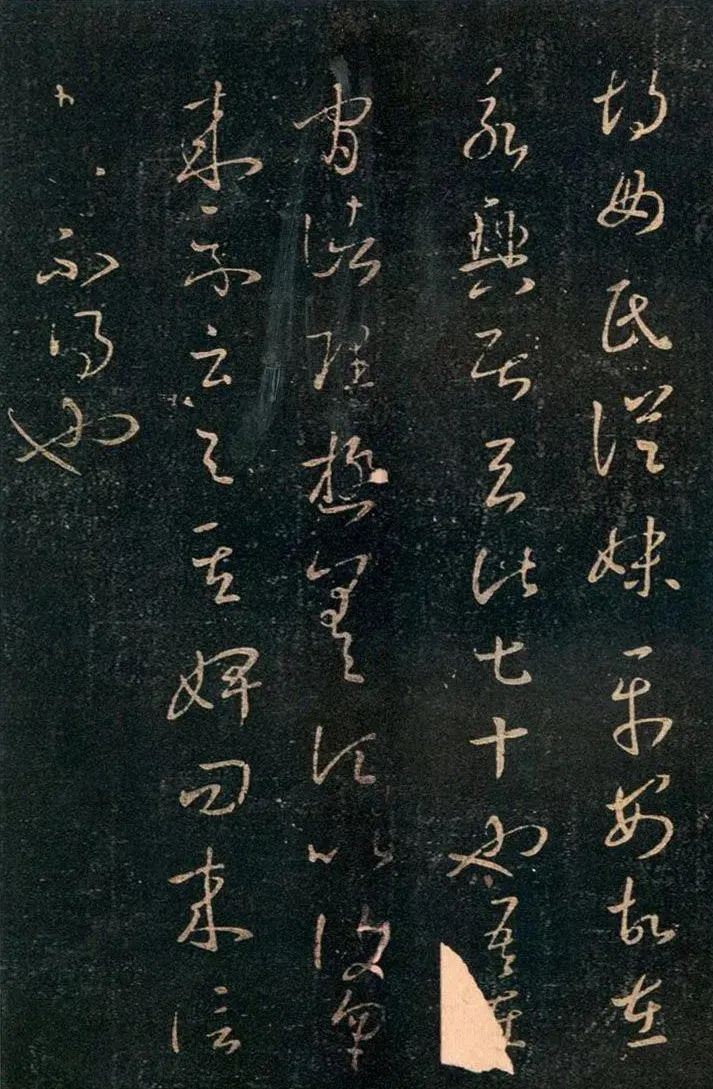 胡母氏從妹平安故在
永興居去此七十也吾在
官諸理極差頃比復勿
來示云与其婢問來信
不得也